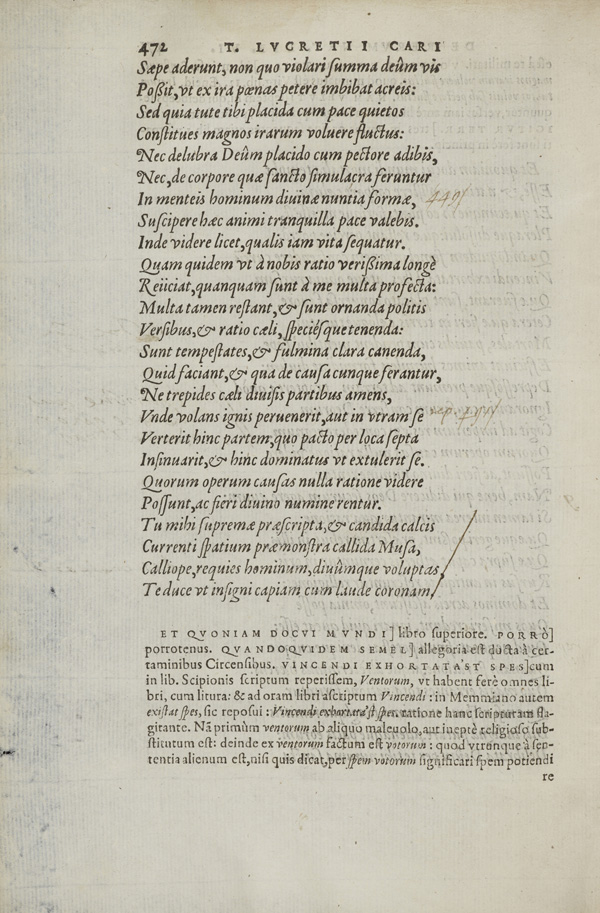 472 T. LVCRETII CARI
Sæpe aderunt, non quo violari summa deûm vis
Poßit, vt ex ira pœnas petere imbibat acreis:
Sed quia tute tibi placida cum pace quietos
Constitues magnos irarum voluere fluctus:
Nec delubra Deûm placido cum pectore adibis,
Nec, de corpore quæ sancto simulacra feruntur
In menteis hominum diuinæ nuntia formæ, 449/
Suscipere hæc animi tranquilla pace valebis.
Inde videre licet, qualis iam vita sequatur.
Quam quidem vt à nobis ratio verißima longè
Reiiciat, quanquam sunt à me multa profecta:
Multa tamen restant, & sunt ornanda politis
Versibus, & ratio cæli, speciésque tenenda:
Sunt tempestates, & fulmina clara canenda,
Quid faciant, & qua de causa cunque ferantur,
Ne trepides cæli diuisis partibus amens,
Vnde volans ignis peruenerit, aut in vtram se
Verterit hinc partem, quo pacto per loca septa
Insinuarit, & hinc dominatus vt extulerit se.
Quorum operum causas nulla ratione videre
Possunt, ac fieri diuino numine rentur.
Tu mihi supremæ præscripta, & candida calcis
Currenti spatium præmonstra callida Musa,
Calliope, requies hominum, diuûmque voluptas,
Te duce vt insigni capiam cum laude coronam,
ET QVONIAM DOCVI MVNDI] libro superiore. PORRÒ]
porrotenus. QVANDOQVIDEM SEMEL] allegoria est ducta à cer-
taminibus Circensibus. VINCENDI EXHORTATA'ST SPES] cum
in lib. Scipionis scriptum reperissem, Ventorum, vt habent ferè omnes li-
bri, cum litura: & ad oram libri ascriptum Vincendi: in Memmiano autem
existat spes, sic reposui: Vincendi exhortata'st spes. ratione hanc scripturam fla-
gitante. Nã primùm ventorum ab aliquo maleuolo, aut ineptè religioso sub-
stitutum est: deinde ex ventorum factum est votorum: quod vtrunque à sen-
tentia alienum est, nisi quis dicat, per spem votorum significari spem potiendi
re